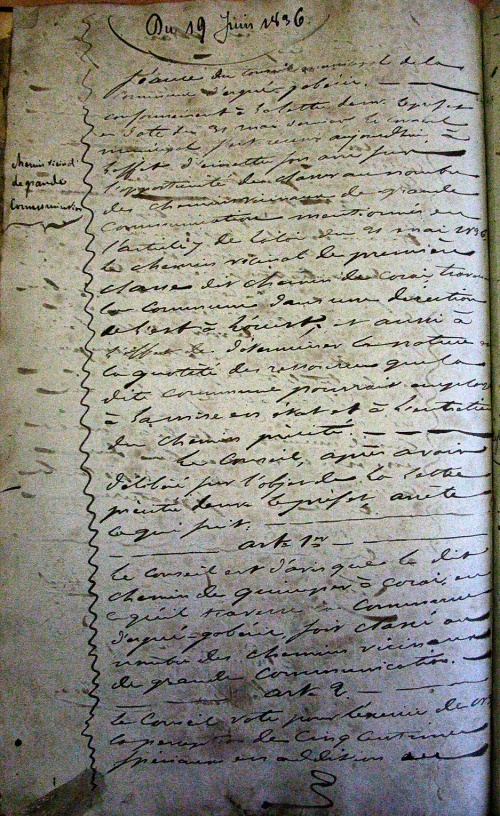 Du 19 Juin 1836.
Séance du conseil municipal de la
Commune d'ergué-gobéric.
conformément à la lettre de mr. le préfet
en date du 31 mai dernier le conseil
municipal s'est réuni aujourd'hui à
l'effet d'émettre son avis sur
l'opportunité de classer au nombre
chemin vicinal
de grande
Communication
des chemins vicinaux de grande
Communication mentionnés en
l'article 7 de la loi du 21 mai 1836
le chemin vicinal de première
classe dit chemin de coraÿ, travers
la commune dans une direction
de l'est à l'ouest, et aussi à
l'effet de déterminer la nature
la quotité des ressources que la
dite commune pourrait employer
à la mise en état et à l'entretien
du chemin précité.
Le Conseil, après avoir
délibéré sur l'objet de la lettre
précitée de mr. le préfet, arrête
ce qui suit.
art. 1er
Le Conseil est d'avis que le dit
chemin de quimper à Coraÿ, en
ce qu'il traverse la commune
d'ergué-gobéric, soit classé au
nombre des chemins vicinaux
de grande Communication.
art. 2.
Le Conseil vote pour l'exercice de
la perception de Cinq Centimes
spéciaux en addition au